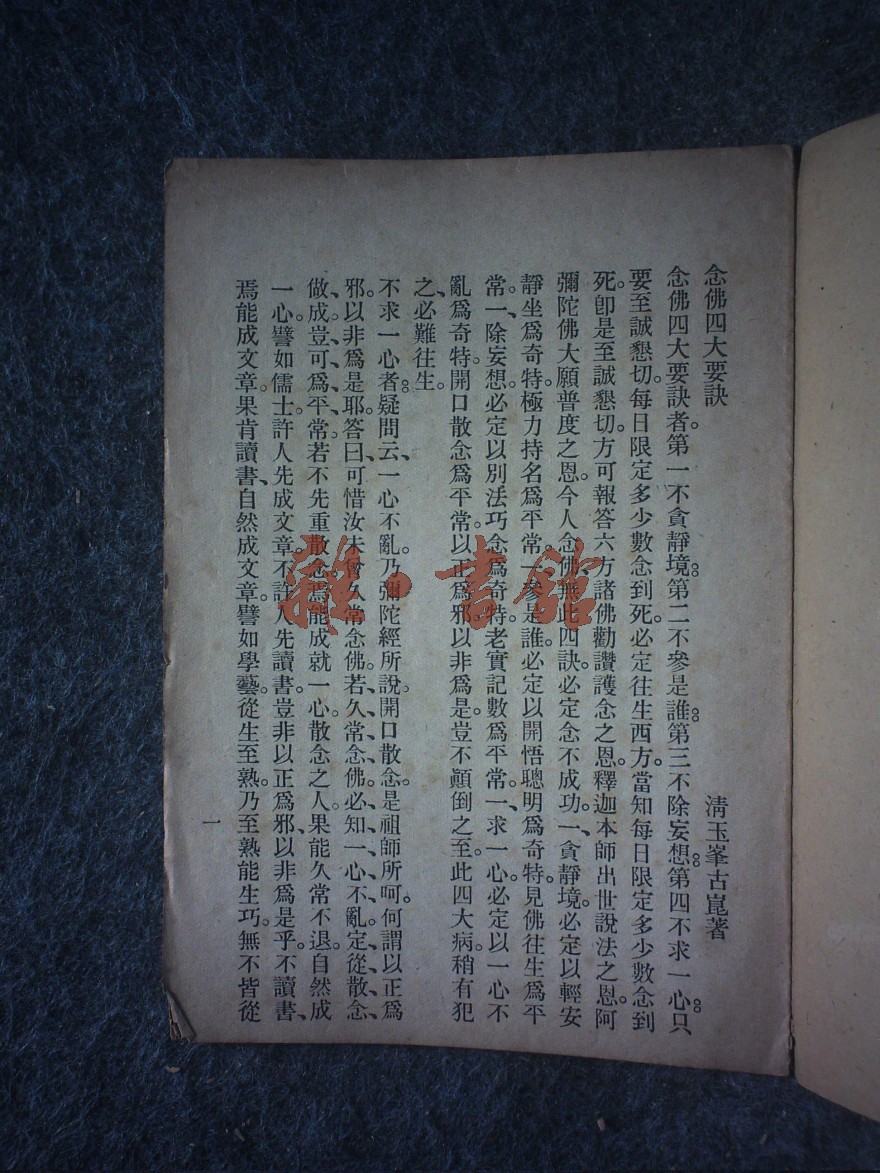 念佛四大要訣
清玉峯古崑著
念佛四大要訣者。第一不貪靜境。第二不參是誰。第三不除妄想。第四不求一心。只、
要至誠懇切。每日限定多少數念到死。必定往生西方。當知每日限定多少數念到
死。卽是至誠懇切。方可報答六方諸佛勸讚護念之恩。釋迦本師出世說法之恩。阿
彌陀佛大願普度之恩。今人念佛。無此四訣。必定念不成功。一、貪靜境。必定以輕安
靜坐爲奇特。極力持名爲平常。一參是誰。必定以開悟聰明爲奇特。見佛往生爲平
常。一、除妄想。必定以別法巧念爲奇特。老實記數爲平常。一、求一心。必定以一心不
亂爲奇特。開口散念爲平常。以正爲邪。以非爲是。豈不顚倒之至。此四大病。稍有犯
之、必難往生。
不求一心者。疑問云、一心不亂。乃彌陀經所說。開口散念。是祖師所呵。何謂以正爲
邪。以非爲是耶。答曰、可惜汝未曾久常念佛。若、久、常念、佛、必知、一心、不、亂、定、從、散念、
做、成。豈可、爲、平常。若不先重散念。焉能成就一心。散念之人。果能久常不退。自然成
一心。譬如儒士。許人先成文章。不許人先讀書。豈非以正爲邪、以非爲是乎。不讀書、
焉能成文章。果肯讀書、自然成文章。譬如學藝。從生至熟。乃至熟能生巧。無不皆從
一
雜·書館